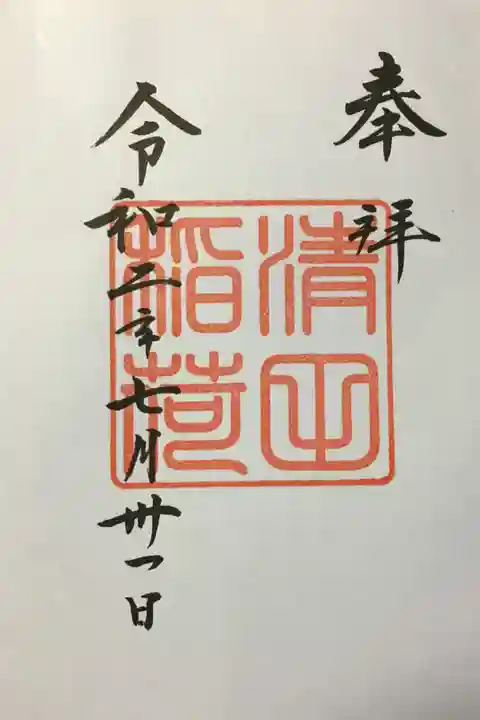 奉拝
清田
稲荷
令和二年七月卅一日